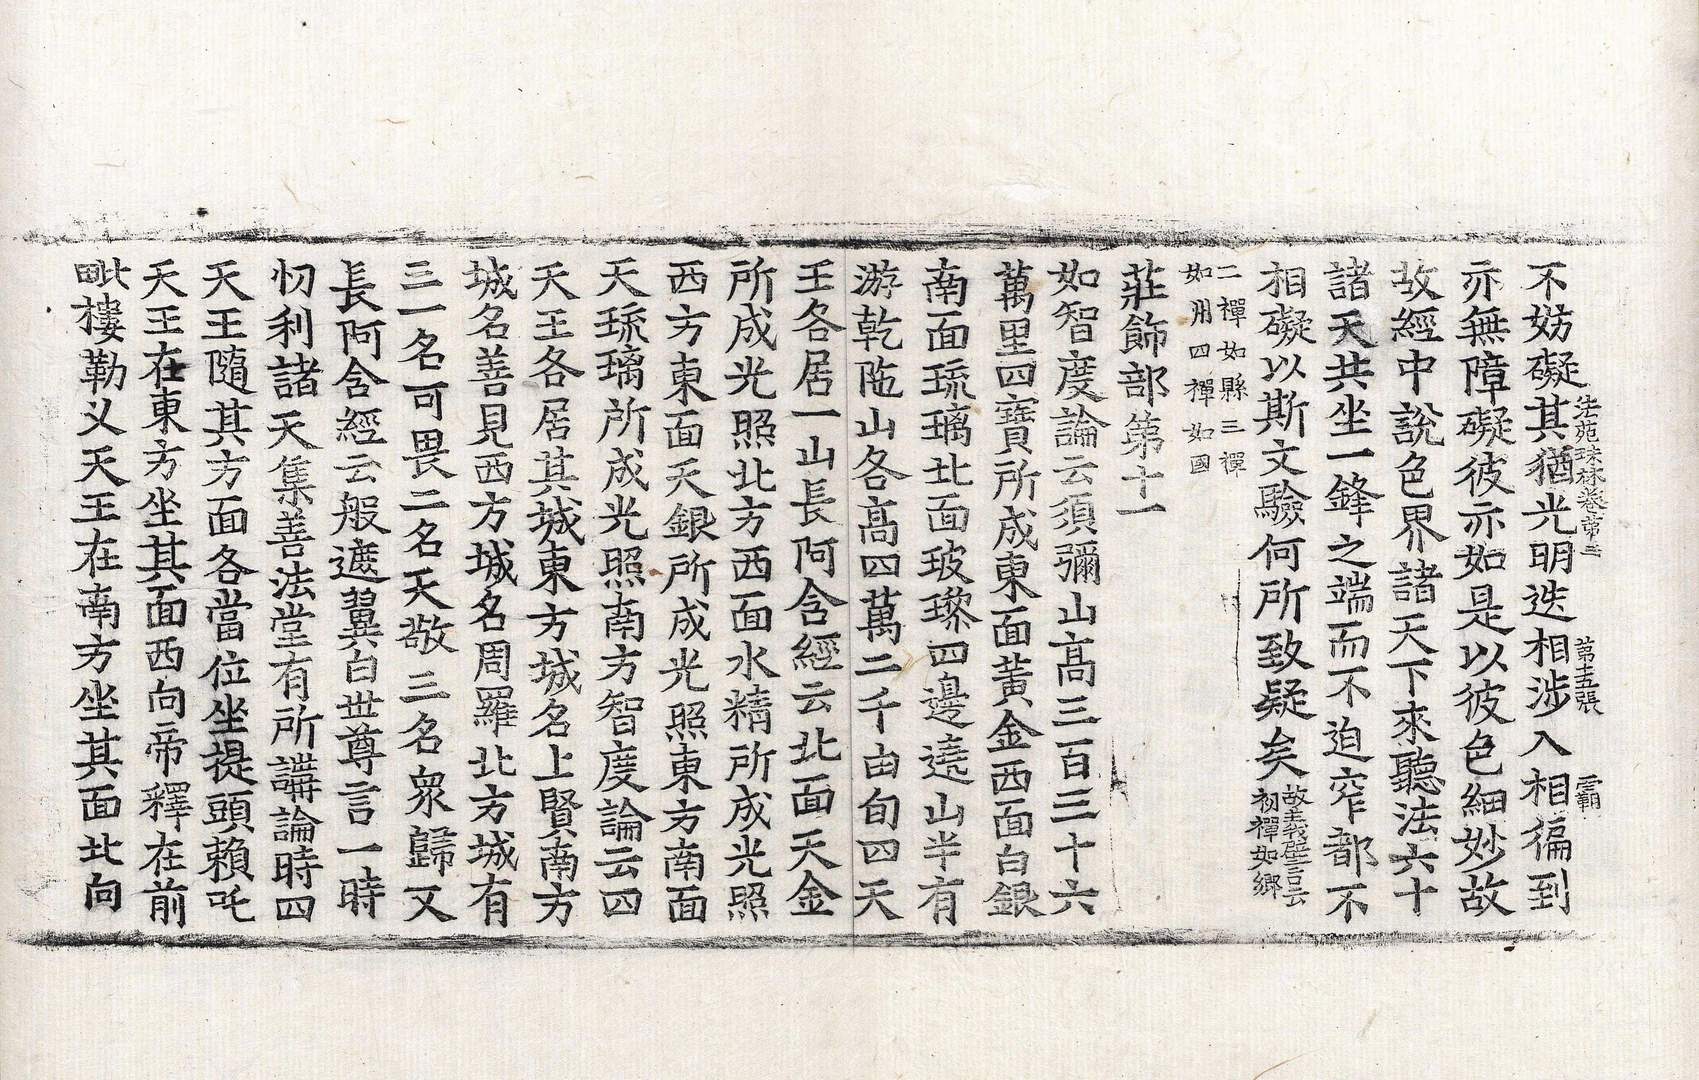 法苑珠林卷第三　第十五張　霸
不妨礙其猶光明迭相涉入相徧到
亦無障礙彼亦如是以彼色細妙故
故經中說色界諸天下來聽法六十
諸天共坐一鋒之端而不迫窄都不
相礙以斯文驗何所致疑矣故主義壁言云
初禪如鄉
二禪如縣三禪
如用四禪如國
莊飾部第十一
如智度論云須彌山高三百三十六
萬里四寶所成東面黃金西面白銀
南面琉璃北面玻瓈四邊遶山半有
游乾陁山各高四萬二千由旬四天
王各居一山長阿含經云北面天金
所成光照北方西面水精所成光照
西方東面天銀所成光照東方南面
天琉璃所成光照南方智度論云四
天王各居其城東方城名上賢南方
城名善見西方城名周羅北方城有
三一名可畏二名天敬三名衆歸又
長阿含經云般遮翼白世尊言一時
忉利諸天集善法堂有所講論時四
天王隨其方面各當位坐提頭賴吒
天王在東方坐其面西向帝釋在前
毗樓勒叉天王在南方坐其面北向